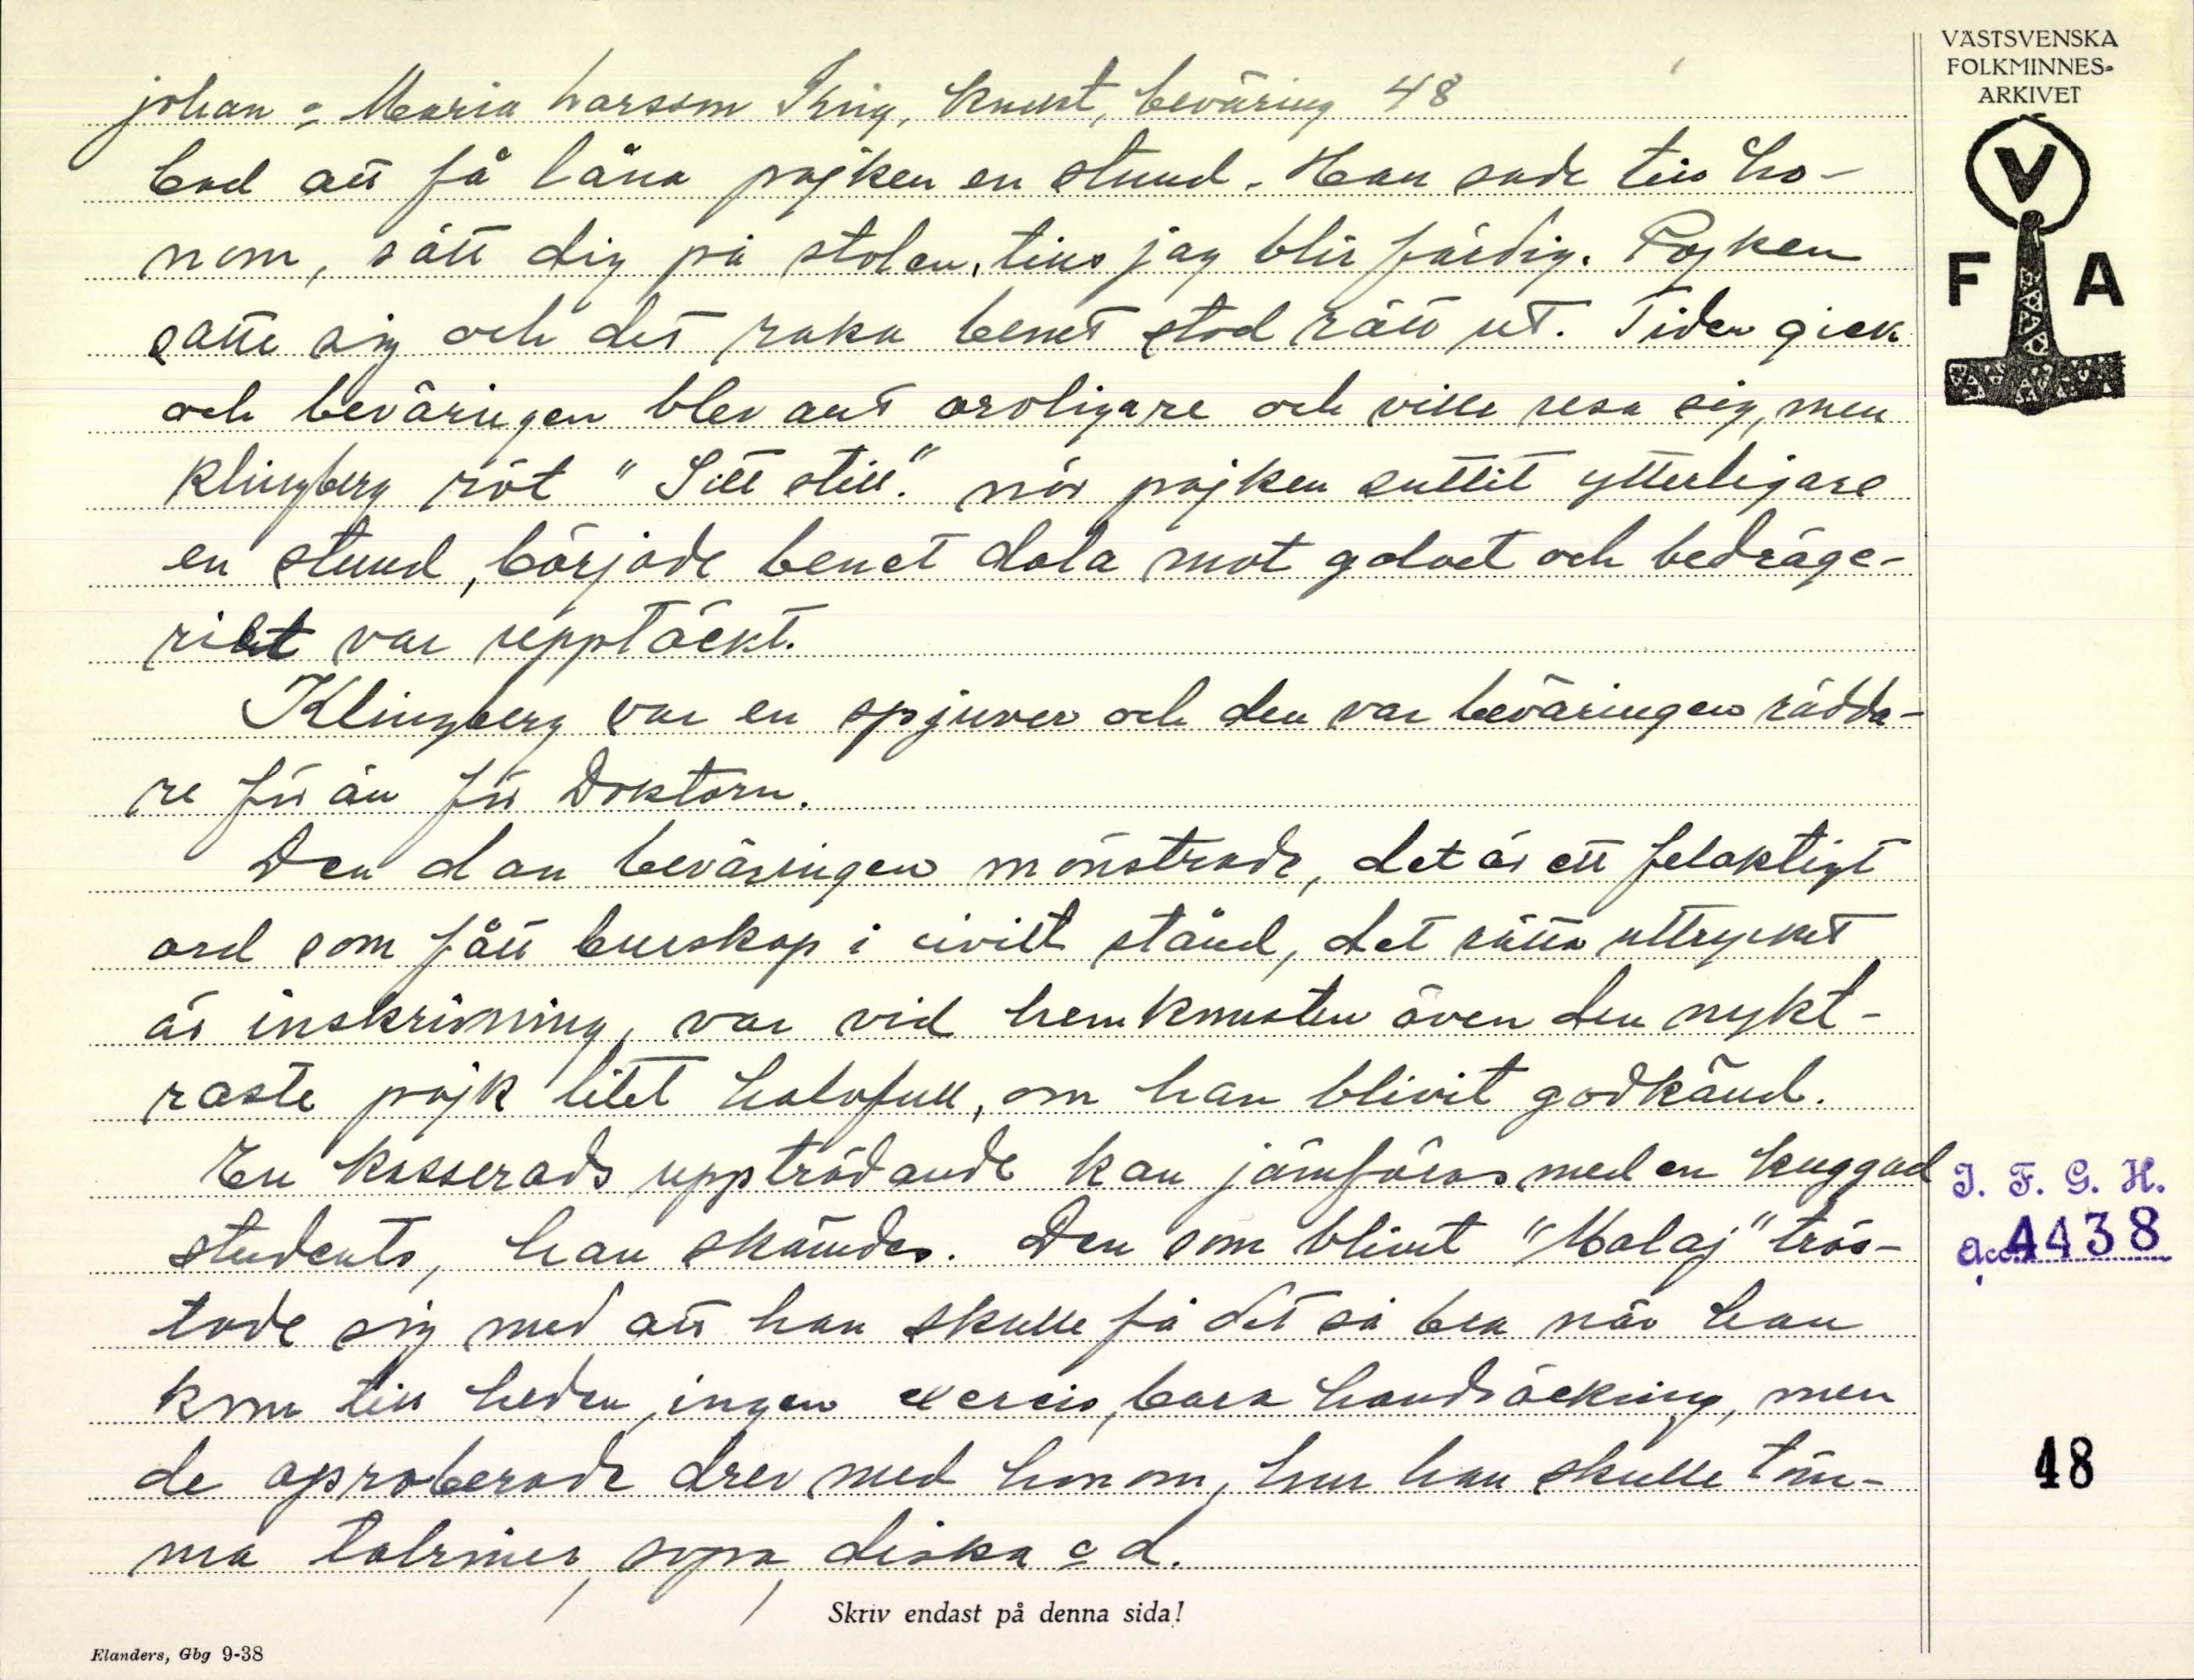 johan o Maria Larsson Krig, knekt, beväring 48
bad att få låna pojken en stund. Han sade till ho-
nom, sätt dig på stolen, tills jag blir färdig. Pojken
satte sig och det raka benet stod rätt ut. Tiden gick
och beväringen blev allt oroligare och ville resa sig, men
Klingberg röt "Sitt still." när pojken suttit ytterligare
en stund, började benet dala mot golvet och bedräge-
riet var upptäckt.
Klingberg var en spjuver och den var beväringen rädda-
re för än för Doktorn.
Den dan beväringen mönstrade, det är ett felaktigt
ord som fått burskap i civilt stånd, det rätta uttrycket
är inskrivning, var vid hemkomsten även den nykt-
raste pojk litet halvfull, om han blivit godkänd.
En kasserads uppträdande kan jämföras med en kuggad
students, han skämdes. Den som blivit "Malaj" trös-
tade sig med att han skulle få det så bra när han
kom till heden, ingen exercis, bara handräckning, men
de aproberade drev med honom, hur han skulle töm-
ma latriner, sopa, diska o d.
Skriv endast på denna sida!
Elanders, Gbg 9-38
VÄSTSVENSKA
FOLKMINNES-
ARKIVET
V
F A
I. F. G. H.
Acc. 4438
48